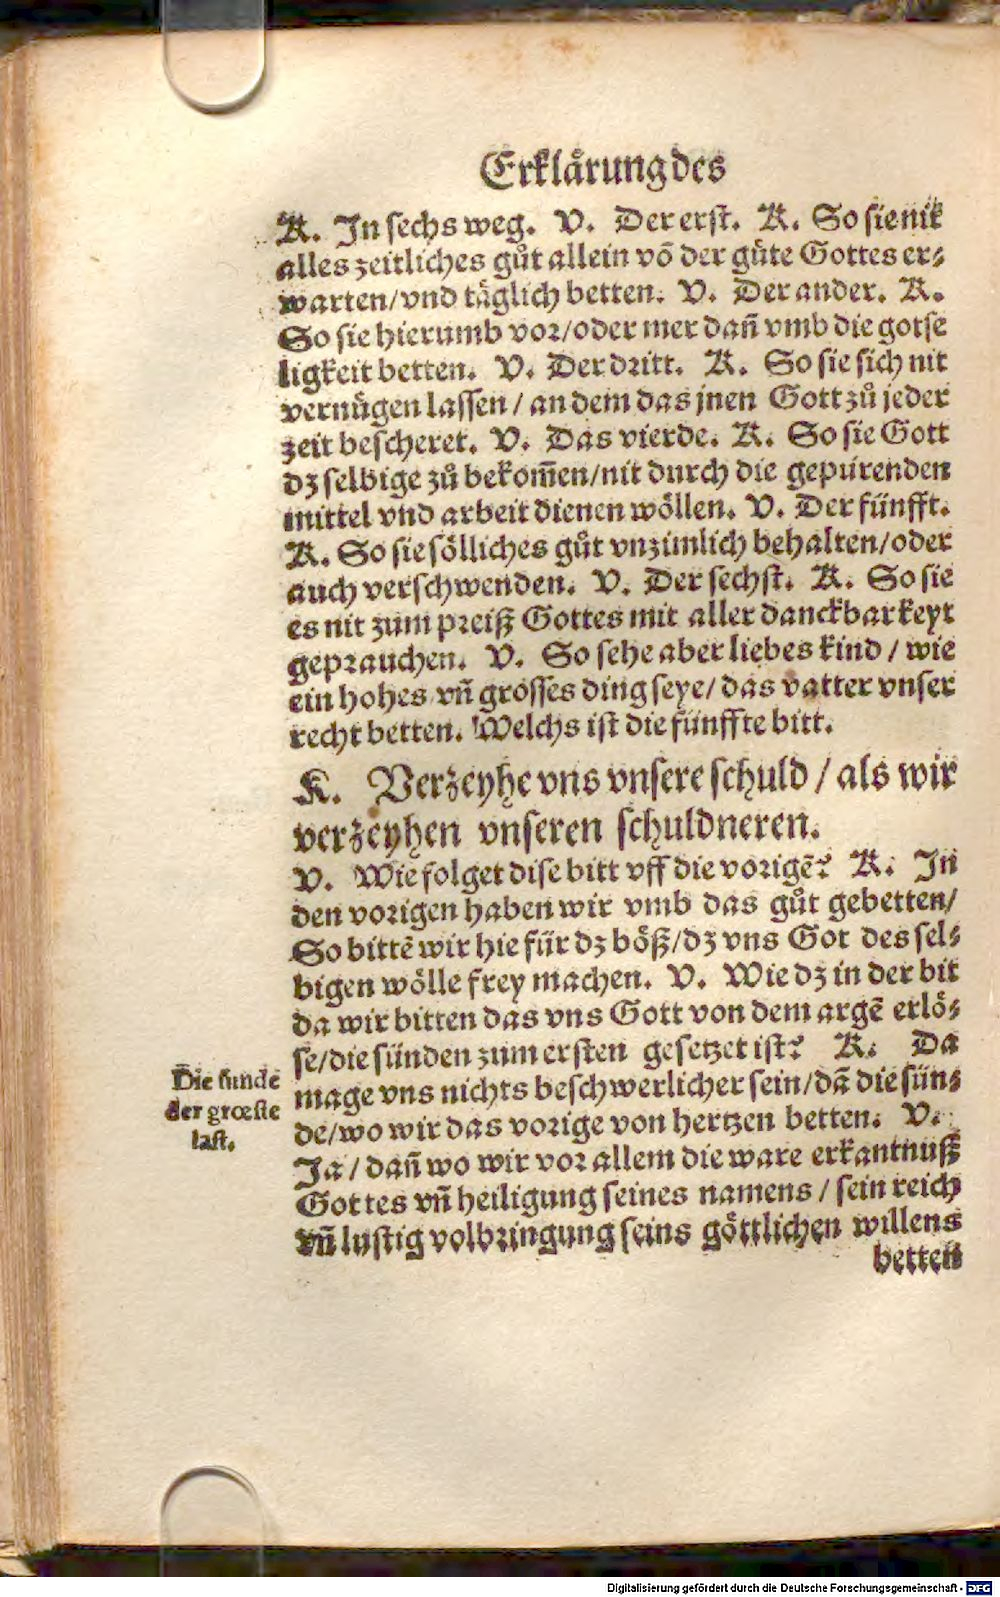 Erklärung des
K. In sechs weg. V. Der erst. K. So sie nit
alles zeitliches gůt allein võ der gůte Gottes er⸗
warten/vnd täglich betten. V. Der ander. K.
So sie hierumb vor/oder mer dañ vmb die gotse
ligkeit betten. V. Der dritt. K. So sie sich nit
vernůgen lassen / an dem das jnen Gott zů jeder
zeit bescheret. V. Das vierde. K. So sie Gott
dz selbige zů bekom̃en/nit durch die gepürenden
mittel vnd arbeit dienen wöllen. V. Der fünfft.
K. So sie sölliches gůt vnzimlich behalten/oder
auch verschwenden. V. Der sechst. K. So sie
es nit zum preiß Gottes mit aller danckbarkeyt
geprauchen. V. So sehe aber liebes kind / wie
ein hohes vñ grosses ding seye/ das vatter vnser
recht betten. Welchs ist die fünffte bitt.
K. Verzeyhe vns vnsere schuld / als wir
verzeyhen vnseren schuldneren.
V. Wie folget dise bitt vff die vorigẽ? K. In
den vorigen haben wir vmb das gůt gebetten/
So bittẽ wir hie für dz böß/dz vns Got des sel⸗
bigen wölle frey machen. V. Wie dz in der bit
da wir bitten das vns Gott von dem argẽ erlö⸗
se/die sünden zum ersten gesetzet ist? K. Da
mage vns nichts beschwerlicher sein/dã die sün⸗
de/wo wir das vorige von hertzen betten. V.
Ja / dañ wo wir vor allem die ware erkantnuß
Gottes vñ heiligung seines namens / sein reich
vñ lustig volbringung seins göttlichen willens
betten
Die sunde
der grœste
last.
Digitalisierung gefördert durch die Deutsche Forschungsgemeinschaft - DFG